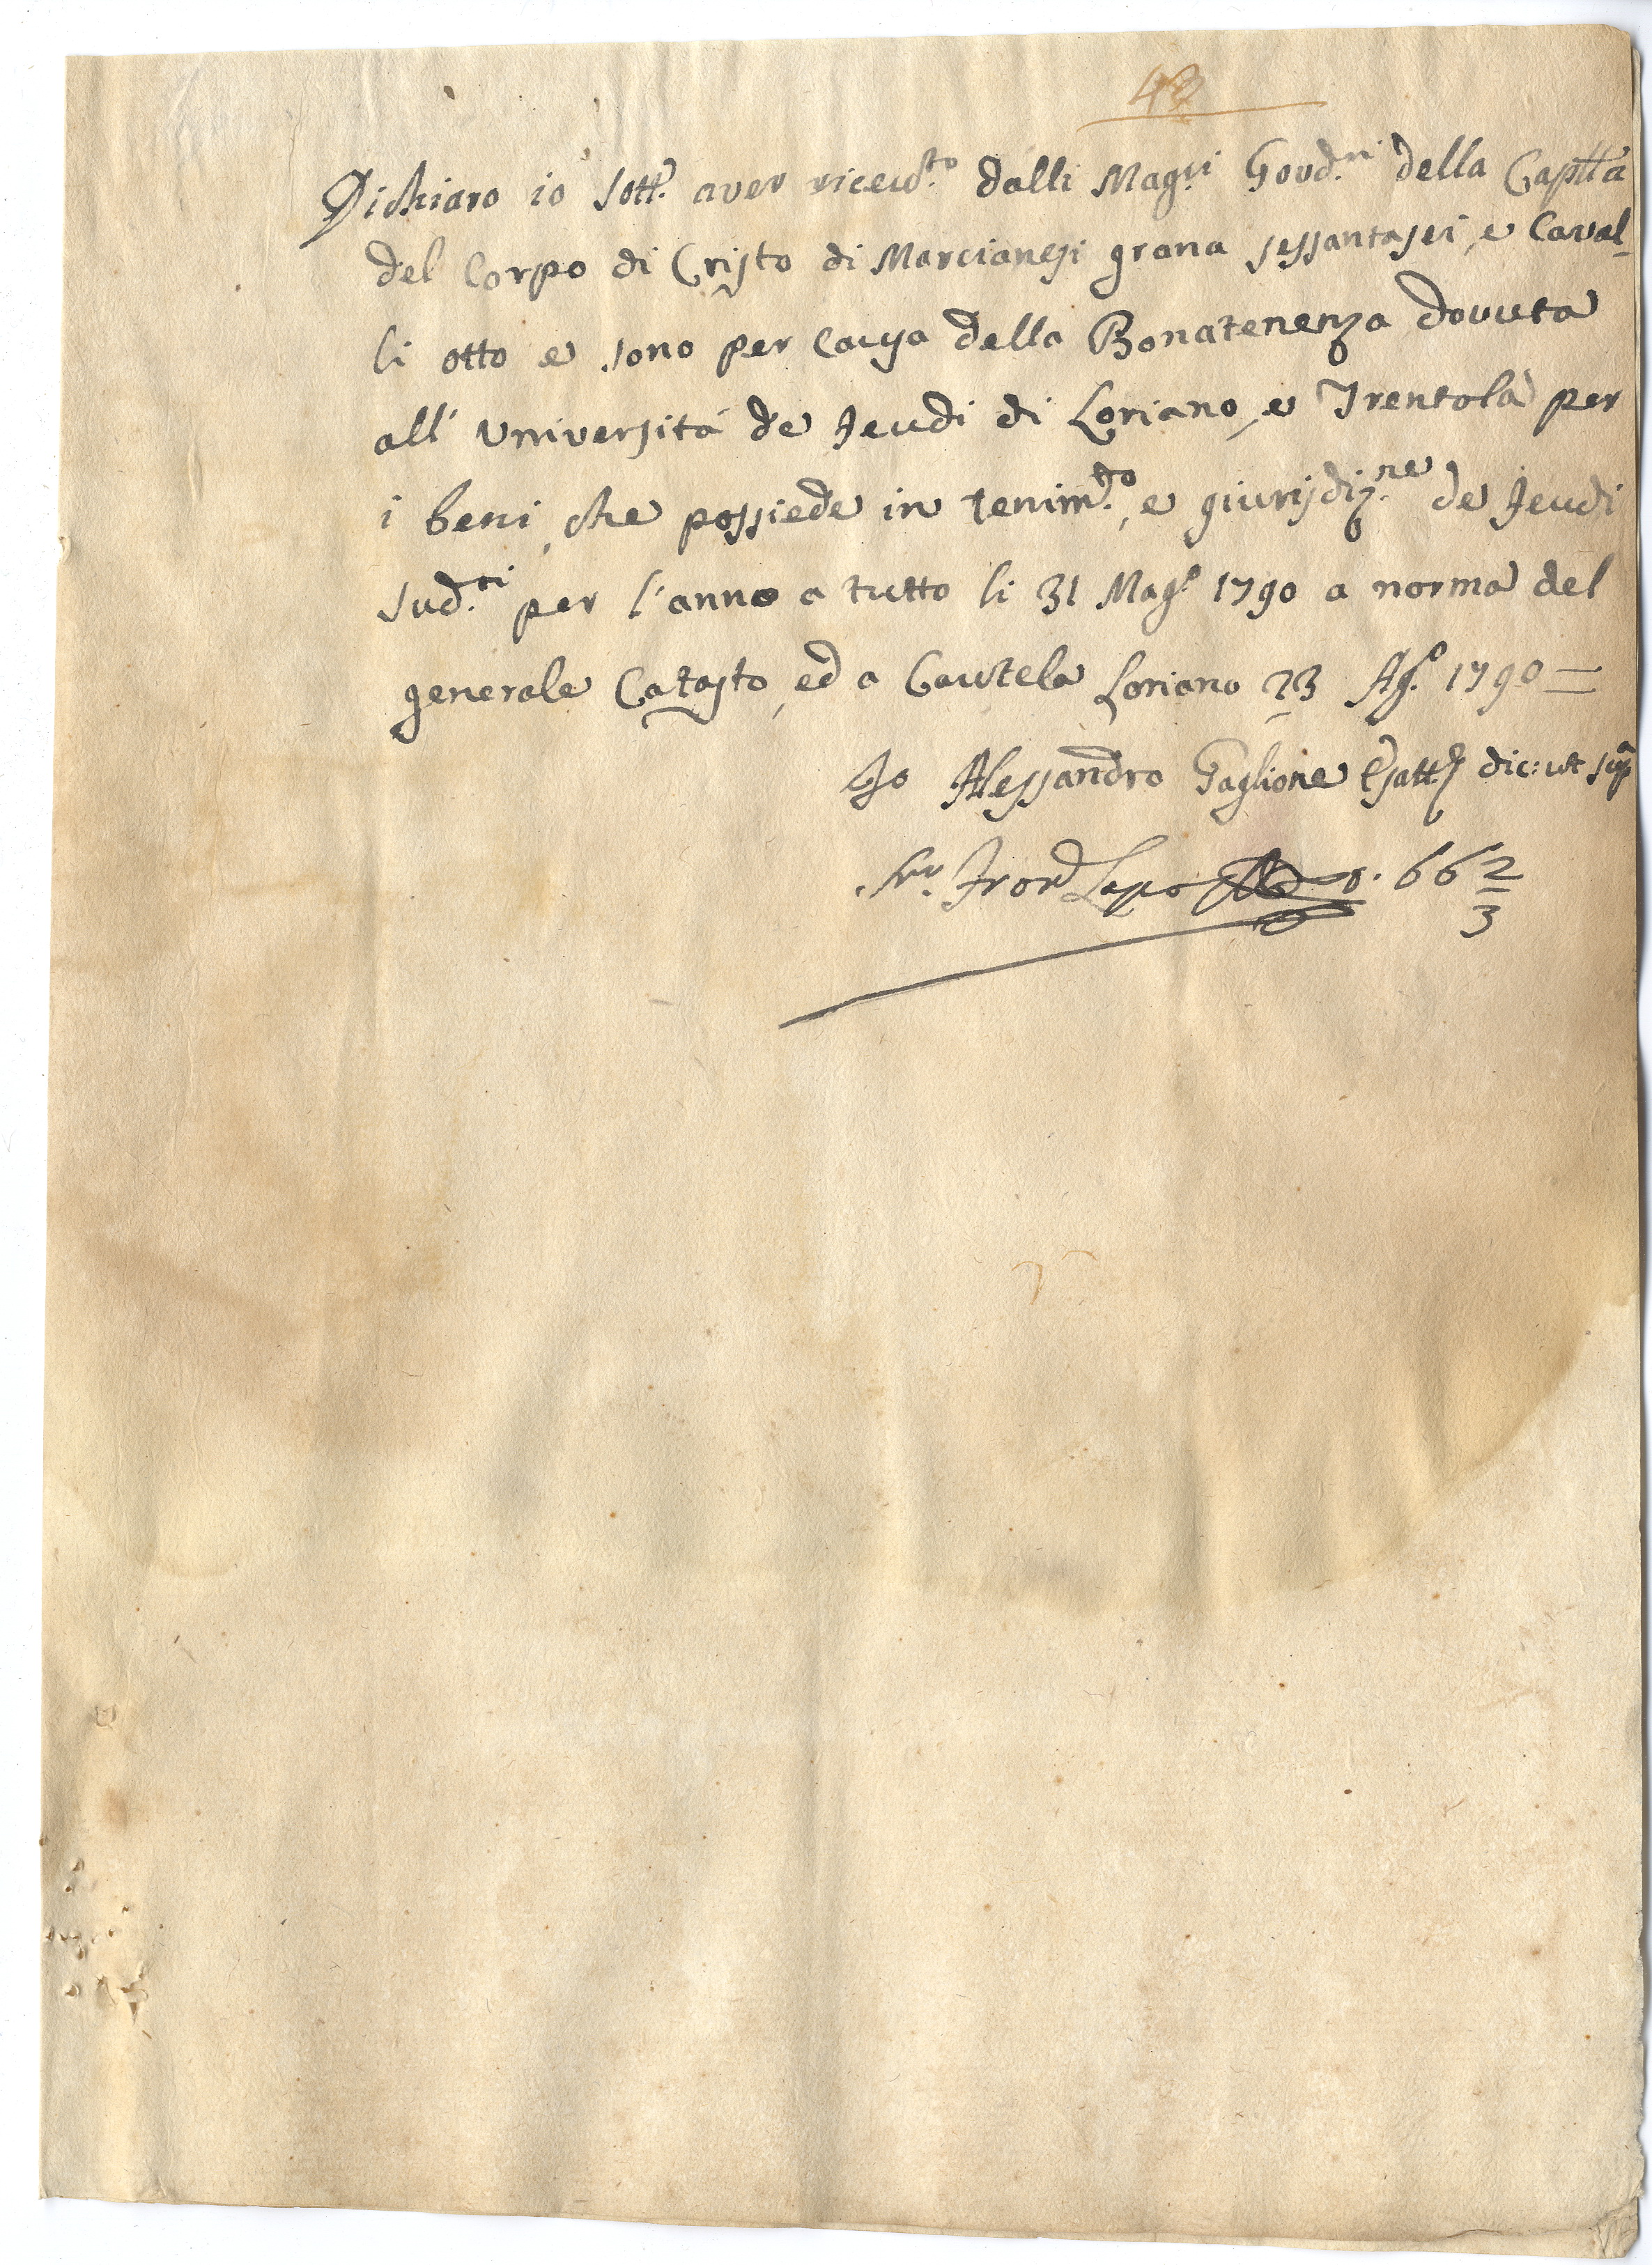 Dichiaro io sott.o aver ricevu.to dalli Mag.ci Gov.ri della Cap.lla
del Corpo di Cristo di Marcianesi grana sessantasei, e Caval-
li otto e sono per causa della Bonatenenza dovuta
all' Università de Feudi di Loriano, e Trentola per
i beni, che possiede in tenim.to, e giurisdiz.ne de Feudi
sud.ti per l'anno a tutto li 31 Mag.o 1790 a norma del
generale Catasto, ed a Cautela Loriano 23 Ag.o 1790 =
Io Alessandro Gaglione Esatt.e dic: ut sup.a
66 2/3